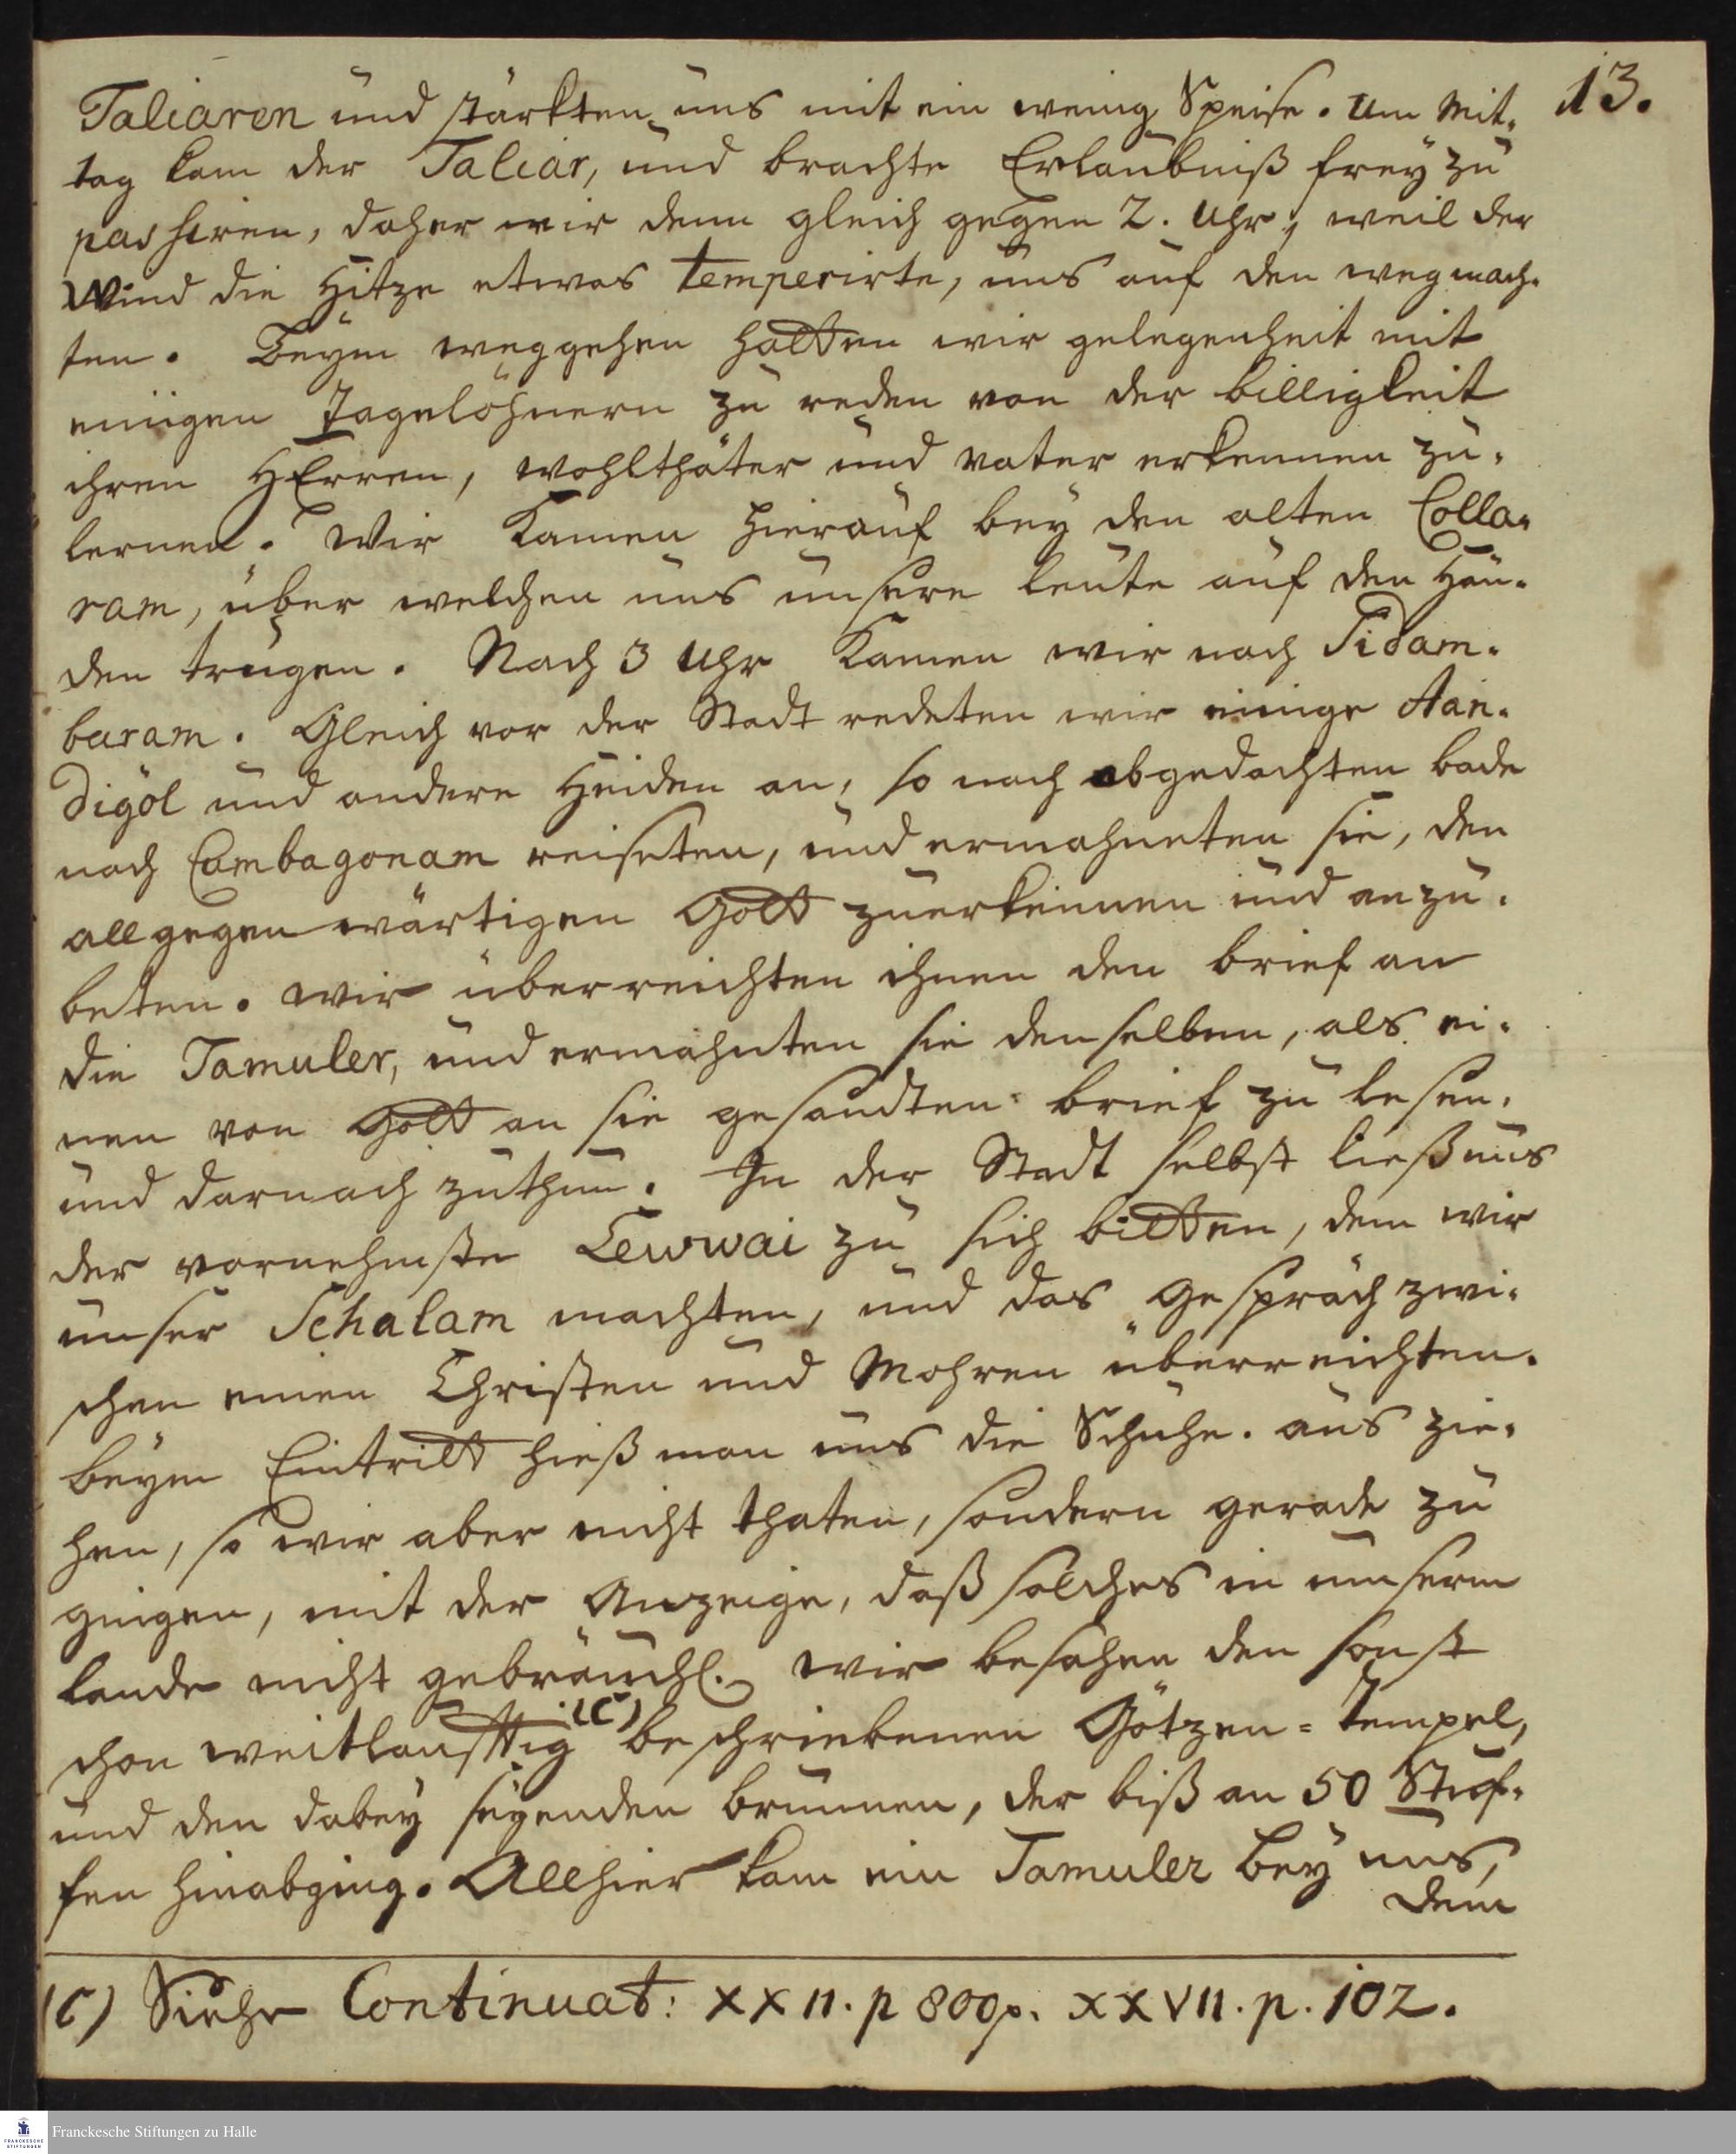 13.
Taliaren und stärkten uns mit ein wenig Speise. Um Mit-
tag kam der Taliar, und brachte Erlaubniß frey zu
passiren, daher wir denn gleich gegen 2. Uhr, weil der
Wind die Hitze etwas temperirte, uns auf den weg mach-
ten. Beym weggehen hatten wir gelegenheit mit
einigen Tagelöhnern zu reden von der billigkeit
ihren HErren, wohlthäter und vater erkennen zu-
lernen. Wir kamen hierauf bey den alten Colla-
ram, über welchen uns unsere leute auf den Hän-
den trugen. Nach 3 Uhr kamen wir nach Sidam-
baram. Gleich vor der Stadt redeten wir einige Aan-
digöl und andere Heiden an, so nach abgedachten bade
nach Combagonam reiseten, und ermahneten sie, den
allgegenwärtigen Gott zuerkennen und anzu-
beten. wir überreichten ihnen den brief an
die Tamuler, und ermahnten sie denselben, als ei-
nen von Gott an sie gesandten brief zu lesen,
und darnach zuthun. In der Stadt selbst ließ uns
der vornehmste Lewwai zu sich bitten, dem wir
unser Schalam machten, und das gespräch zwi-
schen einen Christen und Mohren überreichten.
beym Eintritt hieß man uns die Schuhe aus zie-
hen, so wir aber nicht thaten, sondern gerade zu
gingen, mit der Anzeige, daß solches in unserm
lande nicht gebräuchl. wir besahen den sonst
schon weitläufftig (C) beschriebenen Götzen-Tempel,
und den dabey seyenden brunnen, der biß an 50 Stuf-
fen hinabging. Allhier kam ein Tamuler bey uns,
dem
(C) Siehe Continuat: XXII. p 809. XXVII. p. 102.
Franckesche Stiftungen zu Halle